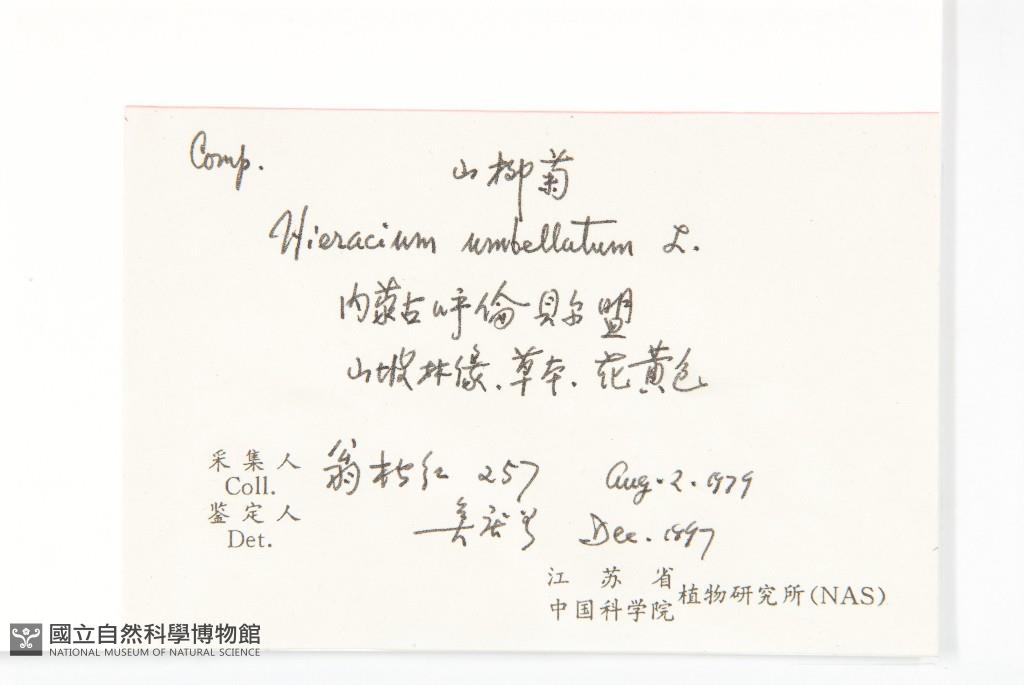 Comp.
山柳菊
Hieracium umbellatum L.
内蒙古呼倫貝尔盟
山坡林缘、草本、花黄色
采集人 翁 红 257 Aug. 2. 1979
Coll.
鉴定人 Dec. 1897
Det.
江苏省
中国科学院 植物研究所(NAS)
國立自然科學博物館
NATIONAL MUSEUM OF NATURAL SCIENCE